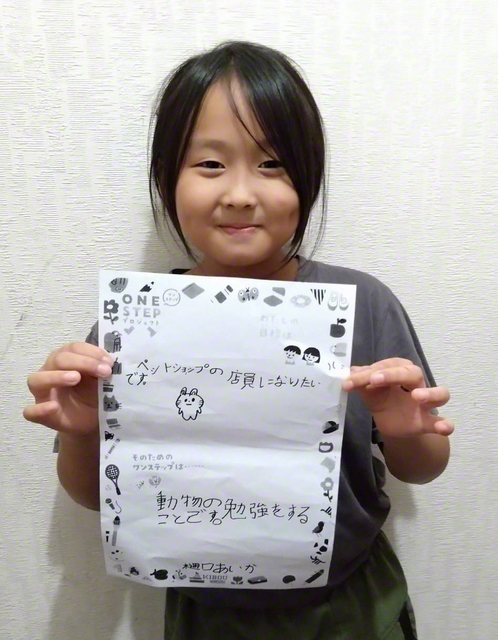 ONE
STEP
プロジェクト
わたしの
目標は…
ペットショップの店員になりたい
です。
そのための
ワンステップは……
動物の勉強をする
ことです。
樋口あいか
KIBOU